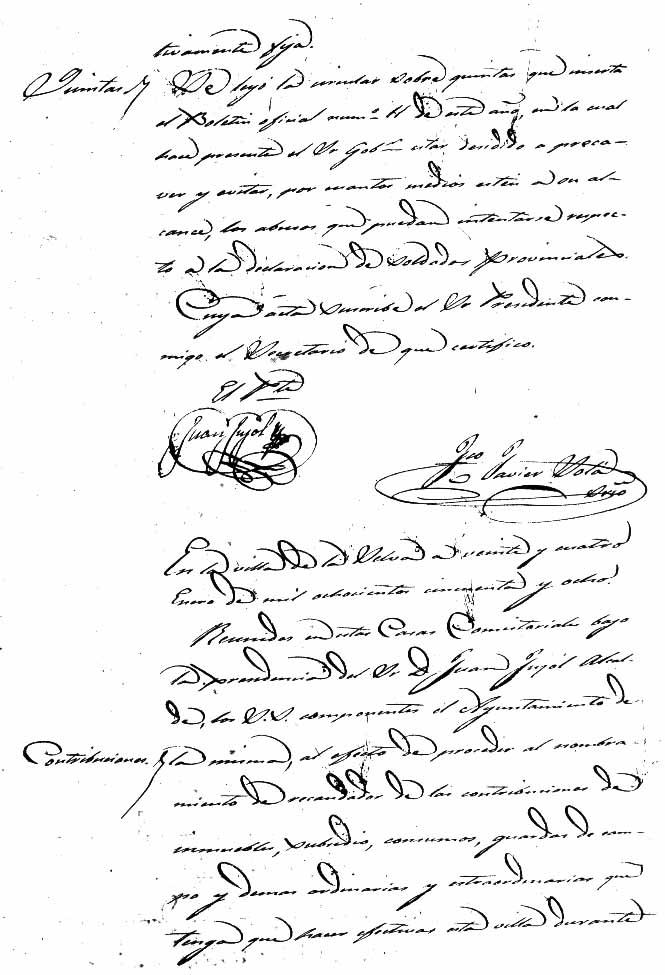 tivamente fija.
Quintas Se leyó la circular sobre quintas que inserta
el Boletin oficial num.º 11 de este año, en la cual
hace presente el Sr Gobr estar decidido a preca-
ver y evitar, por cuantos medios estén a su al-
cance, los abusos que puedan intentarse respec-
to a la declaracion de soldados provinciales.
Cuya acta suscribe el Sr Presidente con-
migo el Secretario de que certifico.
El Pte
Juan Pujol
Fco Javier
Srio
En la villa de la Selva a veinte y cuatro
Enero de mil ochocientos cincuenta y ocho.
Reunidos en estas Casas Consistoriales bajo
la presidencia del Sr D Juan Pujol Alcal-
de, los S.S. componentes el Ayuntamiento de
Contribuciones. la misma, al efecto de proceder al nombra-
miento de recaudador de las contribuciones de
inmuebles, subsidio, consumos, guardas de cam-
po y demas ordinarias y estraordinarias que
tenga que hacer efectivas esta villa durante